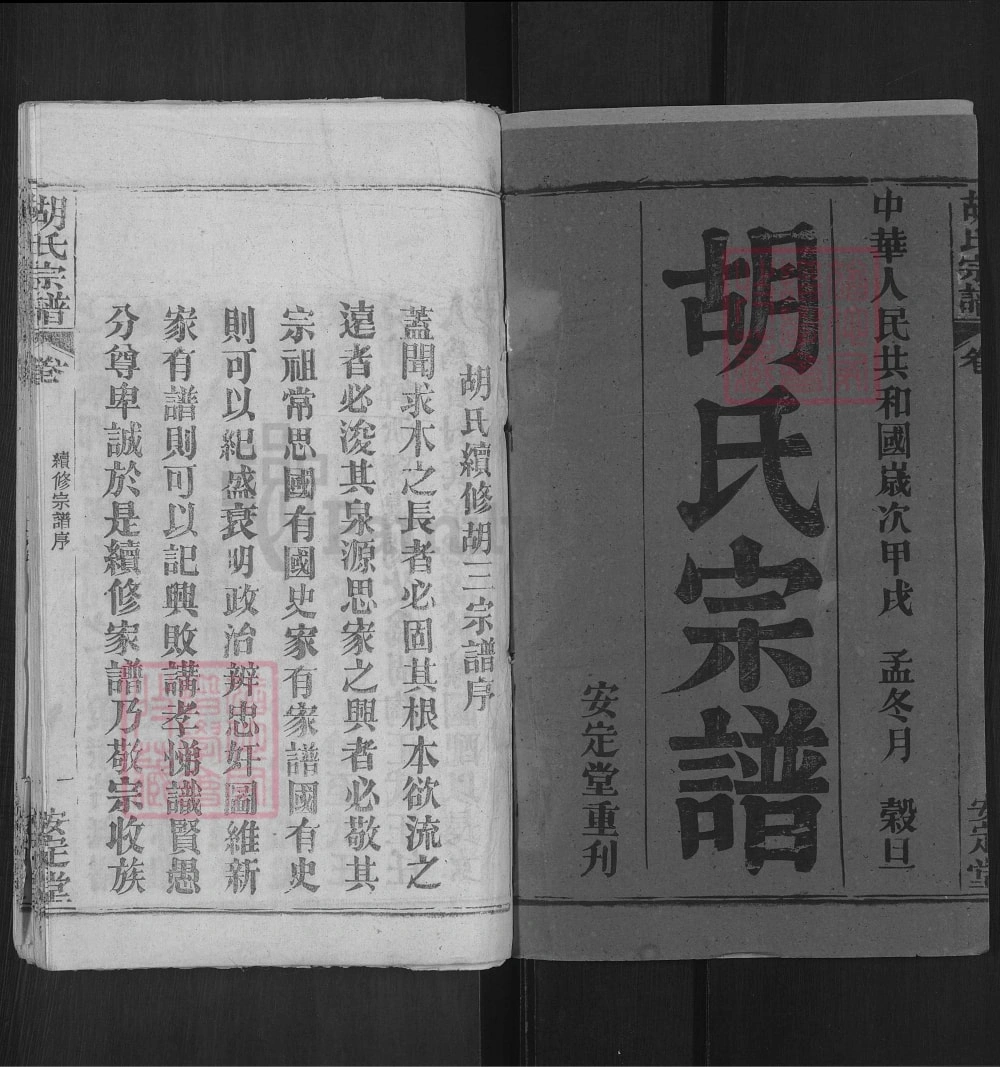 中華人民共和國歲次甲戌　孟冬月　穀旦
胡氏宗譜
安定堂重刋
胡氏宗譜
卷
安定堂
胡氏續修胡三宗譜序
蓋聞求木之長者必固其根本欲流之
遠者必浚其泉源思家之興者必敬其
宗祖常思國有國史家有家譜國有史
則可以紀盛衰明政治辨忠奸圖維新
家有譜則可以記興敗講孝悌識賢愚
分尊卑誠於是續修家譜乃敬宗收族
胡氏宗譜
卷
續修宗譜序
一
安定堂